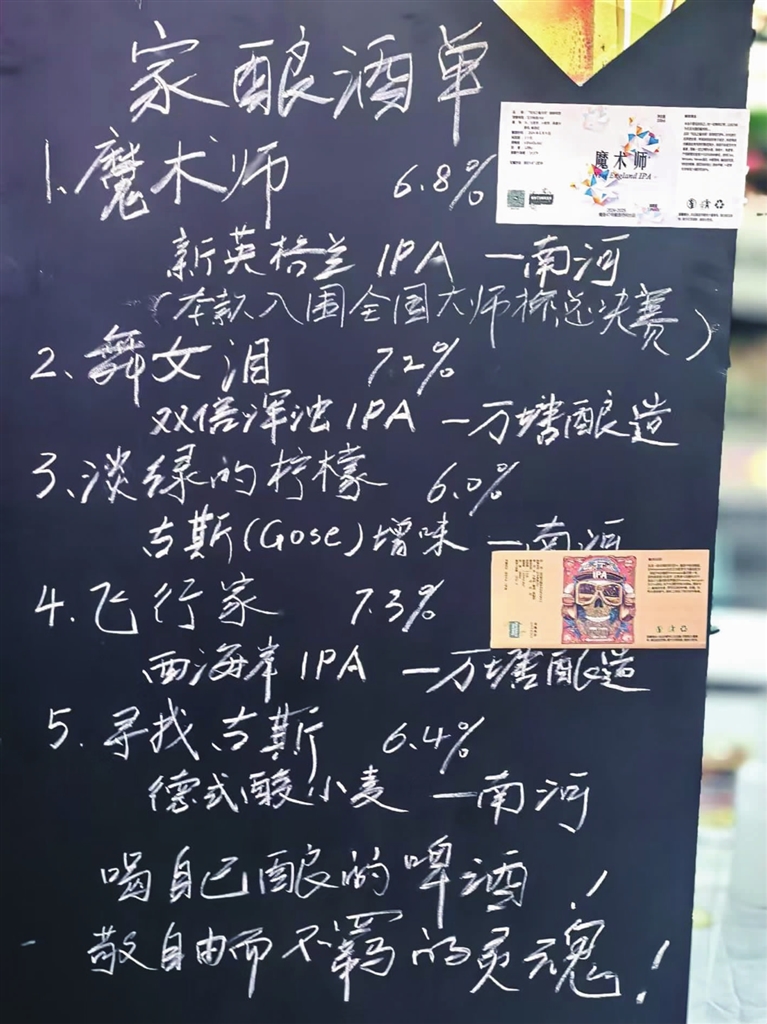 家酿酒单
1、魔术师 6.8%
魔术师
England IPA
新英格兰 IPA —南河
(本款入围全国大师杯总决赛)
2、舞女泪 7.2%
双倍浑浊 IPA —万塘酿造
3、淡绿的柠檬 6.0%
古斯(Gose)增味 —南河
IPA
4、飞行家 7.3%
西海岸 IPA —万塘酿造
5、寻找古斯 6.4%
德式酸小麦 —南河
喝自己酿的啤酒！
敬自由而不羁的灵魂！